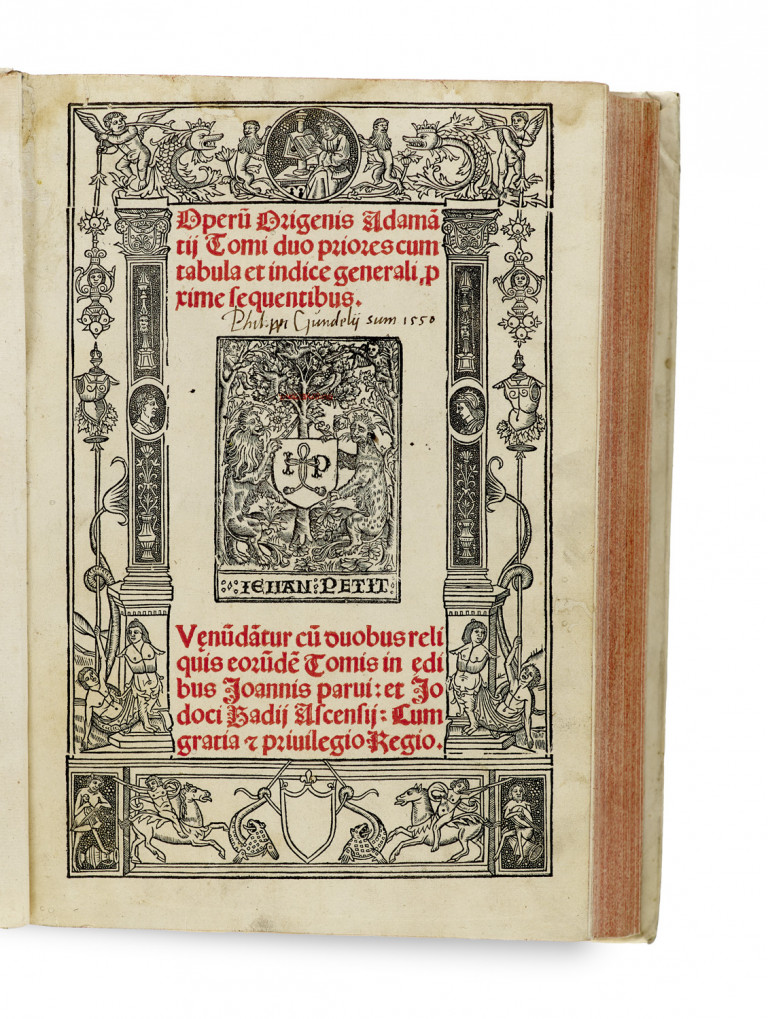 Operū Origenis Adamā
tij Tomi duo priores cum
tabula et indice generali, ꝓ
xime sequentibus.
Philippi Gundelij sum 1550
H P
IEHAN PETIT
Vęnūdātur cū duobus reli
quis eorūdē Tomis in edi
bus Joannis parui: et Jo
doci Badij Ascensij: Cum
gratia ⁊ priuilegio Regio.